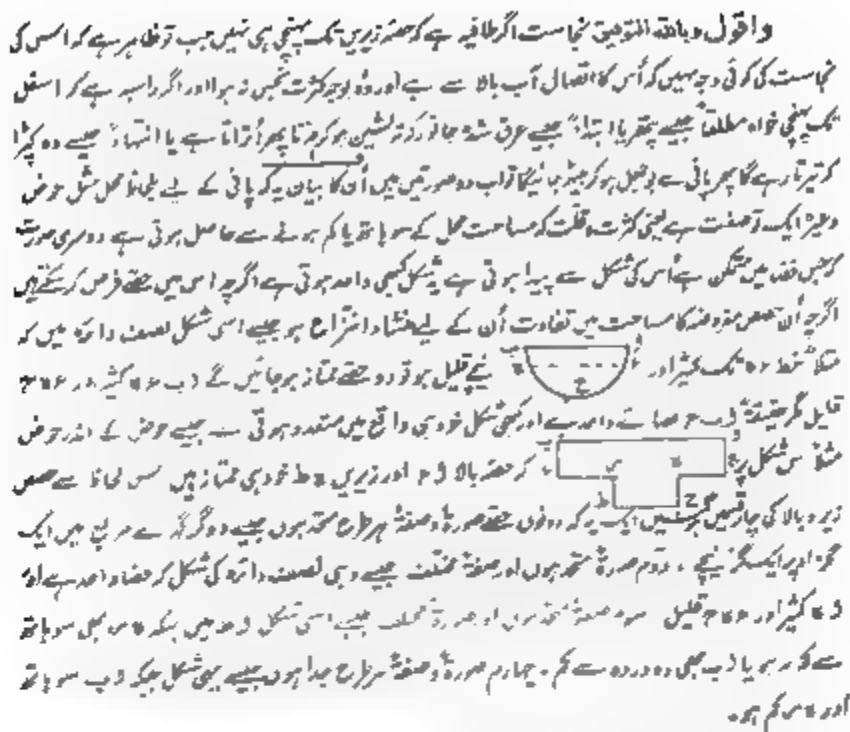 واقول وباللہ التوفیق نجاست اگر طافیہ ہے کہ حصہ زیریں تک پہنچی ہی نہیں جب تو ظاہر ہے کہ اس کی
نجاست کی کوئی وجہ نہیں کہ اُس کا اتصال آب بالا سے ہے اور وہ بوجہ کثرت نجس نہ ہوا اور اگر راسبہ ہے کہ اسفل
تک پہنچی خواہ مطلقاً جیسے پتھر یا ابتداءً جیسے غرق شدہ جانور کہ تہ نشین ہو کر مرتا پھر اُتراتا ہے یا انتہاءً جیسے وہ کپڑا
کہ تیرتا رہے گا پھر پانی سے بوجھل ہو کر بیٹھ جائیگا تو اب دو صورتیں ہیں اُن کا بیان یہ کہ پانی کے لیے بلحاظ محل مثل حوض
وغیرہ ایک تو صفت ہے یعنی کثرت وقلت کہ مساحت محل کے سو ہاتھ یا کم ہونے سے حاصل ہوتی ہے دوسری صورت
کہ جس فضا میں متمکن ہے اُس کی شکل سے پیدا ہوتی ہے یہ شکل کبھی واحد ہوتی ہے اگرچہ اس میں حصے فرض کرسکتے ہیں
اگرچہ اُن حصص مفروضہ کا مساحت میں تفاوت اُن کے لیے منشاء انتزاع ہو جیسے اسی شکل نصف دائرہ میں کہ
مثلاً خط ء ہ تک کثیر اور نیچے قلیل ہو تو دو حصے ممتاز ہوجائیں گے ا ب ء ہ کثیر اور ء ہ ح
قلیل مگر حقیقۃً ا ب ح فضائے واحد ہے اور کبھی شکل خود ہی واقع میں متعدد ہوتی ہے جیسے حوض کے اندر حوض
مثلاً اس شکل پر کہ حصہ بالا ا ء اور زیریں ہ ط خود ہی ممتاز ہیں اس لحاظ سے حصص
زیر وبالا کی چار قسمیں ہیں ایک یہ کہ دونوں حصے صورۃً وصفۃً ہر طرح متحد ہوں جیسے دو گز گہرے مربع میں ایک
گز اوپر ایک گز نیچے، دوم صورۃً متحد ہوں اور صفۃً مختلف جیسے وہی نصف دائرہ کی شکل کہ فضا واحد ہے اور
ا ہ کثیر اور ء ہ ح قلیل سوم صفۃً متحد ہوں اور صورۃً مختلف جیسے اسی شکل ا ء میں جبکہ ہ س بھی سو ہاتھ
سے کم نہ ہو یا ا ب بھی دہ در دہ سے کم۔ چہارم صورۃً وصفۃً ہر طرح جدا ہوں جیسے یہی شکل جبکہ ا ب سو ہاتھ
اور ہ س کم ہو۔